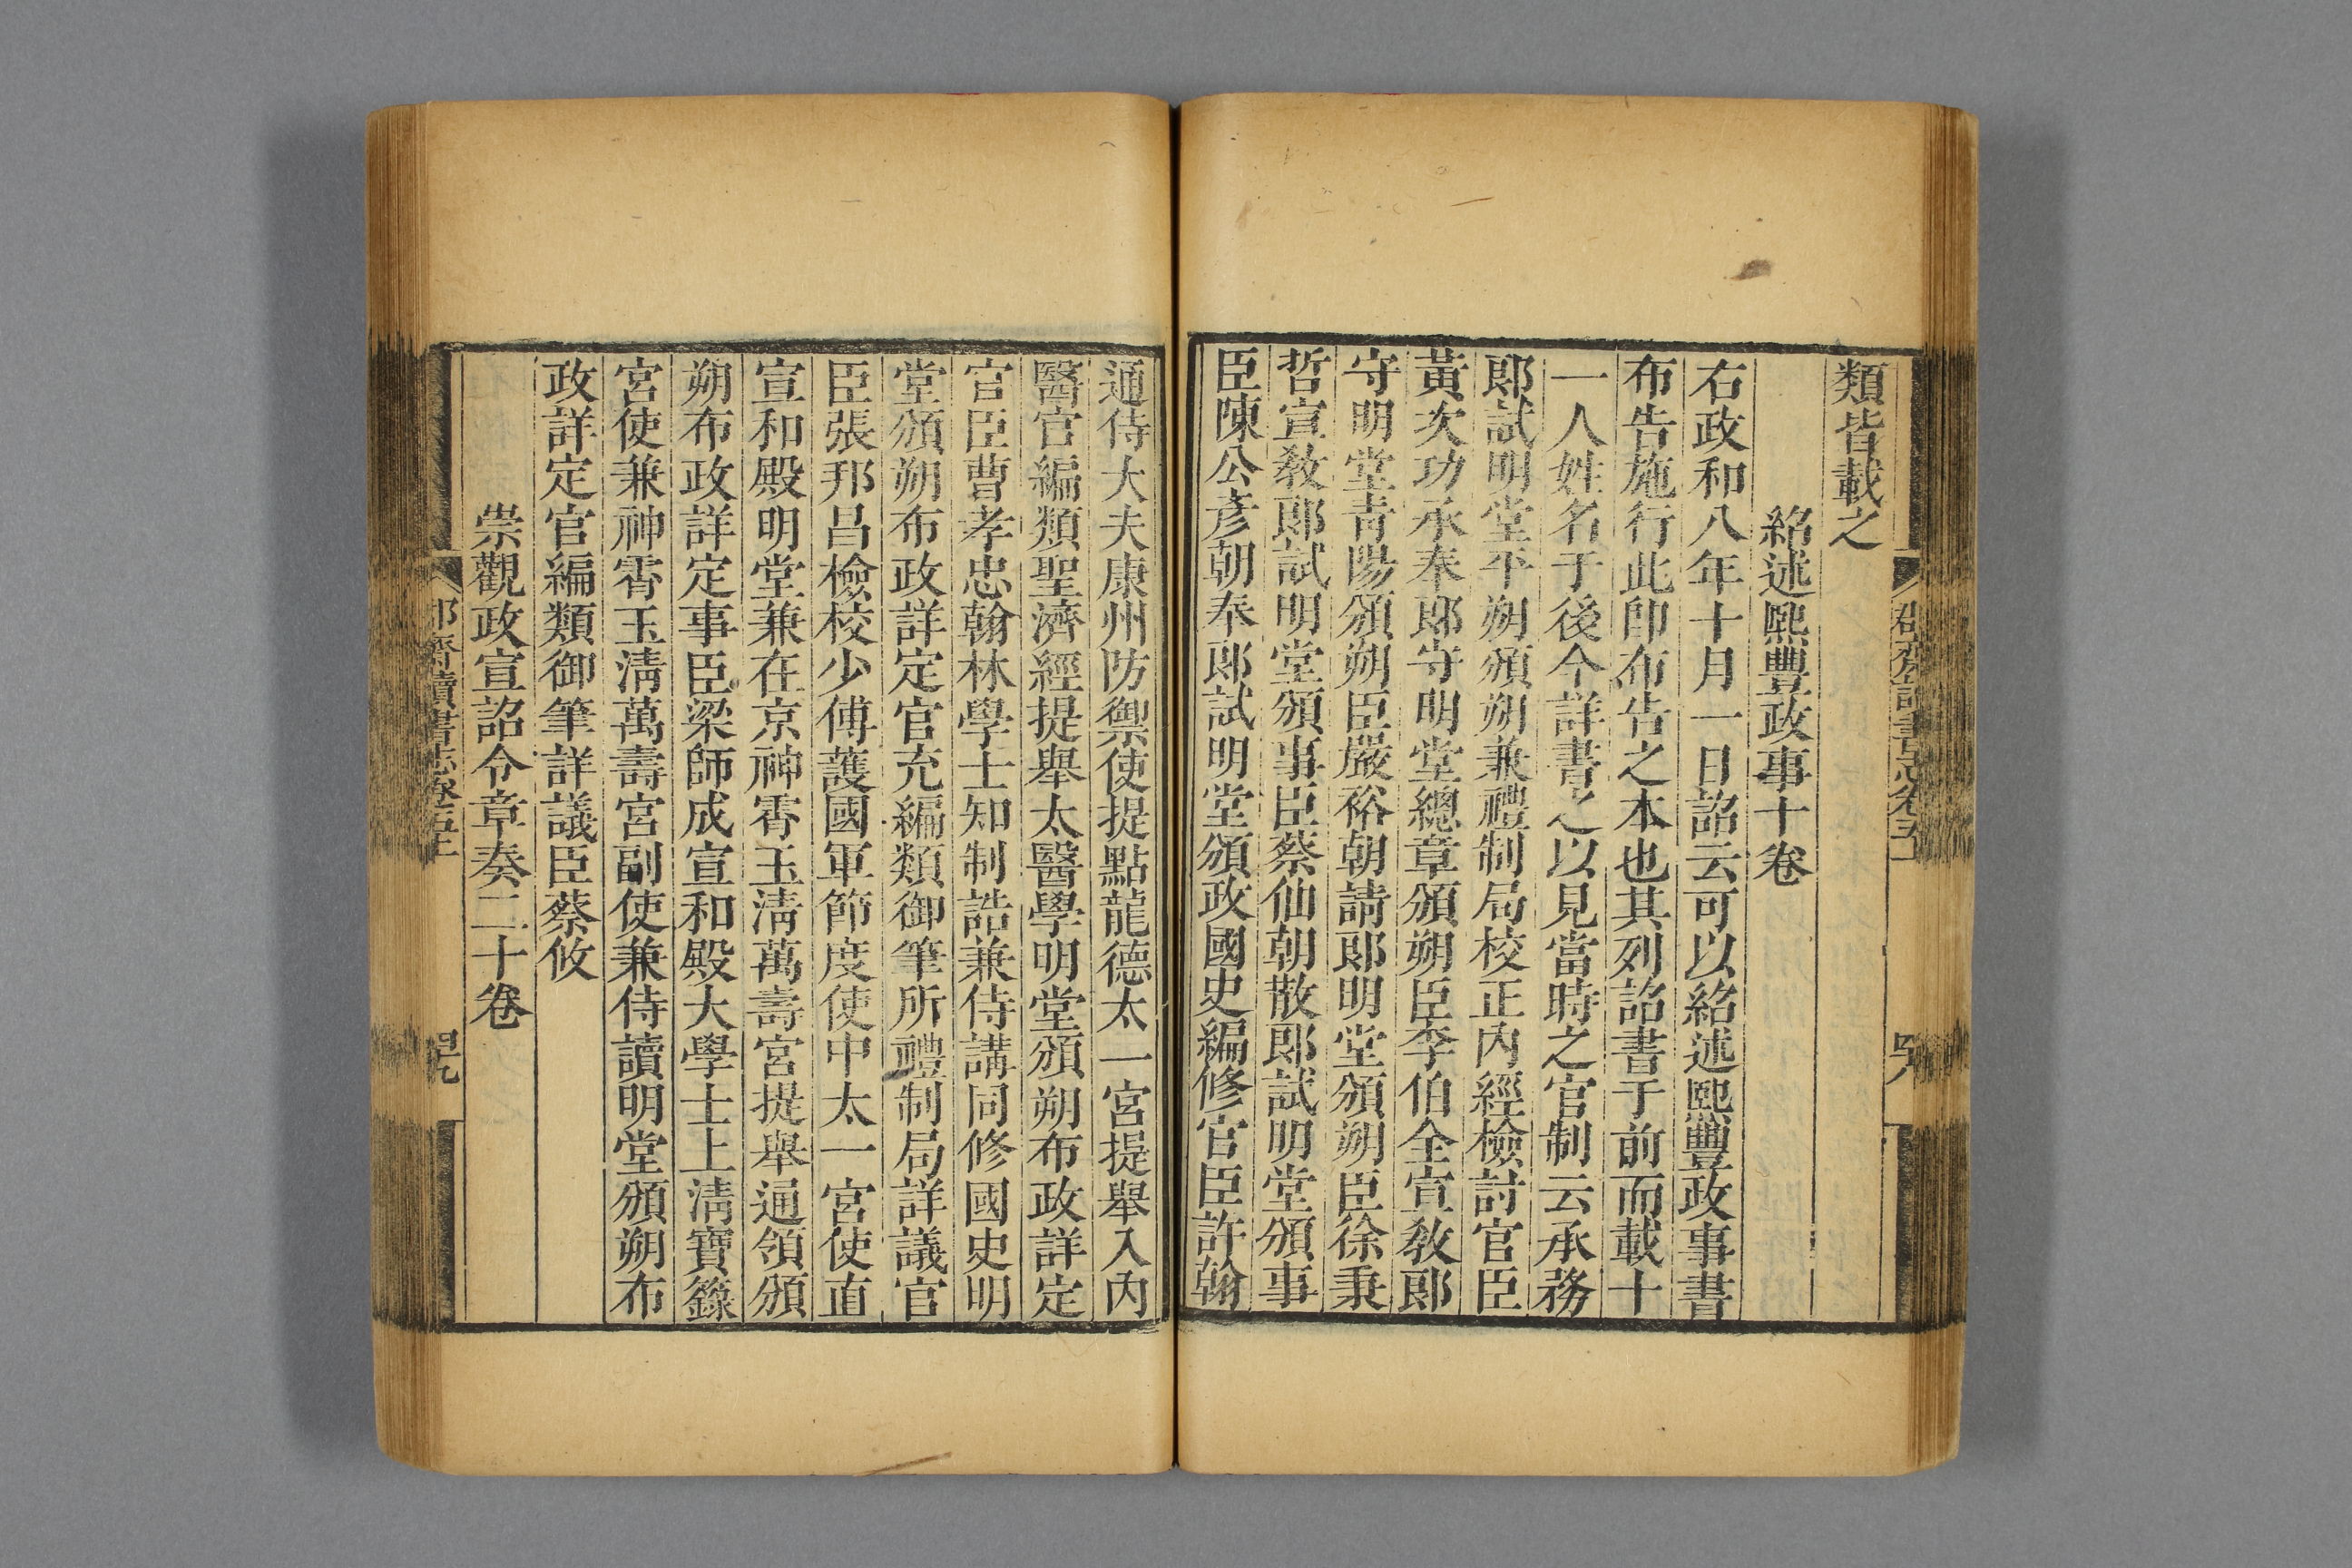 類皆載之
紹述熙豐政事十卷
右政和八年十月一日詔云可以紹述熙豐政事書
布告施行此卽布告之本也其列詔書于前而載十
一人姓名于後今詳書之以見當時之官制云承務
郎試明堂平朔頒朔兼禮制局校正內經檢討官臣
黃次功承奉郎守明堂總章頒朔臣李伯全宣敎郎
守明堂青陽頒朔臣嚴裕朝請郎明堂頒朔臣徐秉
哲宣敎郎試明堂頒事臣蔡仙朝散郎試明堂頒事
臣陳公彥朝奉郎試明堂頒政國史編修官臣許翰
通侍大夫康州防禦使提點龍德太一宮提舉入內
醫官編類聖濟經提舉太醫學明堂頒朔布政詳定
官臣曹孝忠翰林學士知制誥兼侍講同修國史明
堂頒朔布政詳定官充編類御筆所禮制局詳議官
臣張邦昌檢校少傅護國軍節度使中太一宮使直
宣和殿明堂兼在京神霄玉淸萬壽宮提舉通領頒
朔布政詳定事臣梁師成宣和殿大學士上淸寶籙
宮使兼神霄玉淸萬壽宮副使兼侍讀明堂頒朔布
政詳定官編類御筆詳議臣蔡攸
崇觀政宣詔令章奏二十卷